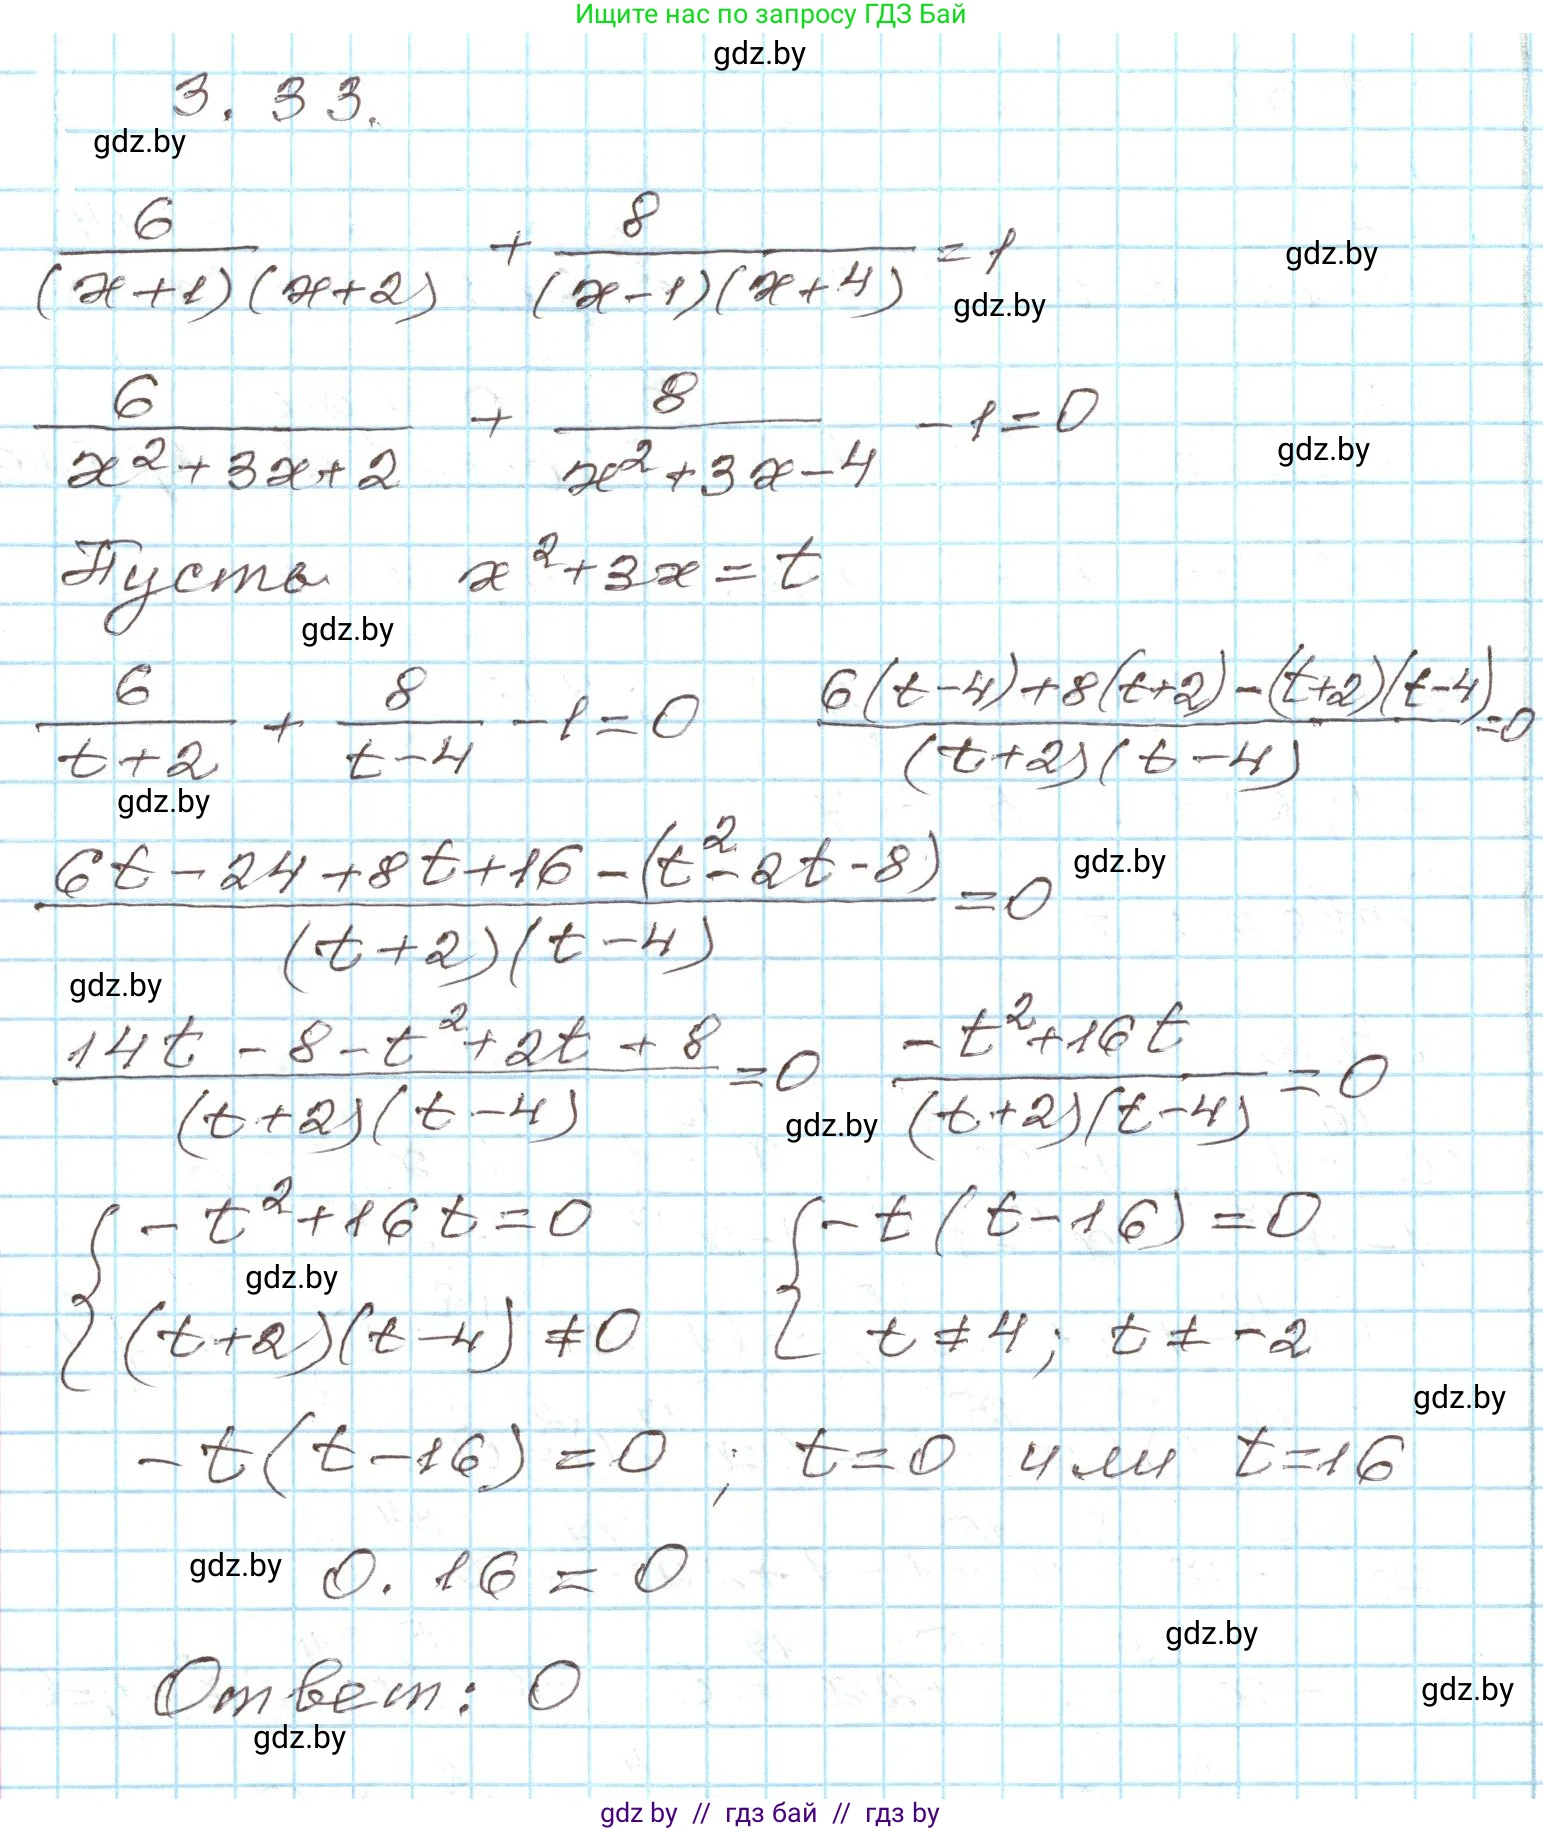 Ищите нас по запросу ГДЗ Бай
gdz.by
3.33.
gdz.by
6/((x+1)(x+2)) + 8/((x-1)(x+4)) = 1
gdz.by
gdz.by
6/(x²+3x+2) + 8/(x²+3x-4) - 1 = 0
gdz.by
Пусть x²+3x=t
gdz.by
6/(t+2) + 8/(t-4) - 1 = 0 (6(t-4)+8(t+2)-(t+2)(t-4))/((t+2)(t-4)) = 0
gdz.by
(6t-24+8t+16-(t²-2t-8))/((t+2)(t-4)) = 0
gdz.by
gdz.by
(14t-8-t²+2t+8)/((t+2)(t-4)) = 0 (-t²+16t)/((t+2)(t-4)) = 0
gdz.by
{ -t²+16t=0 { -t(t-16)=0
gdz.by
(t+2)(t-4)≠0 t≠4; t≠-2
gdz.by
-t(t-16)=0; t=0 или t=16
gdz.by
0.16=0
gdz.by
Ответ: 0
gdz.by
gdz.by
gdz by // гдз бай // гдз by